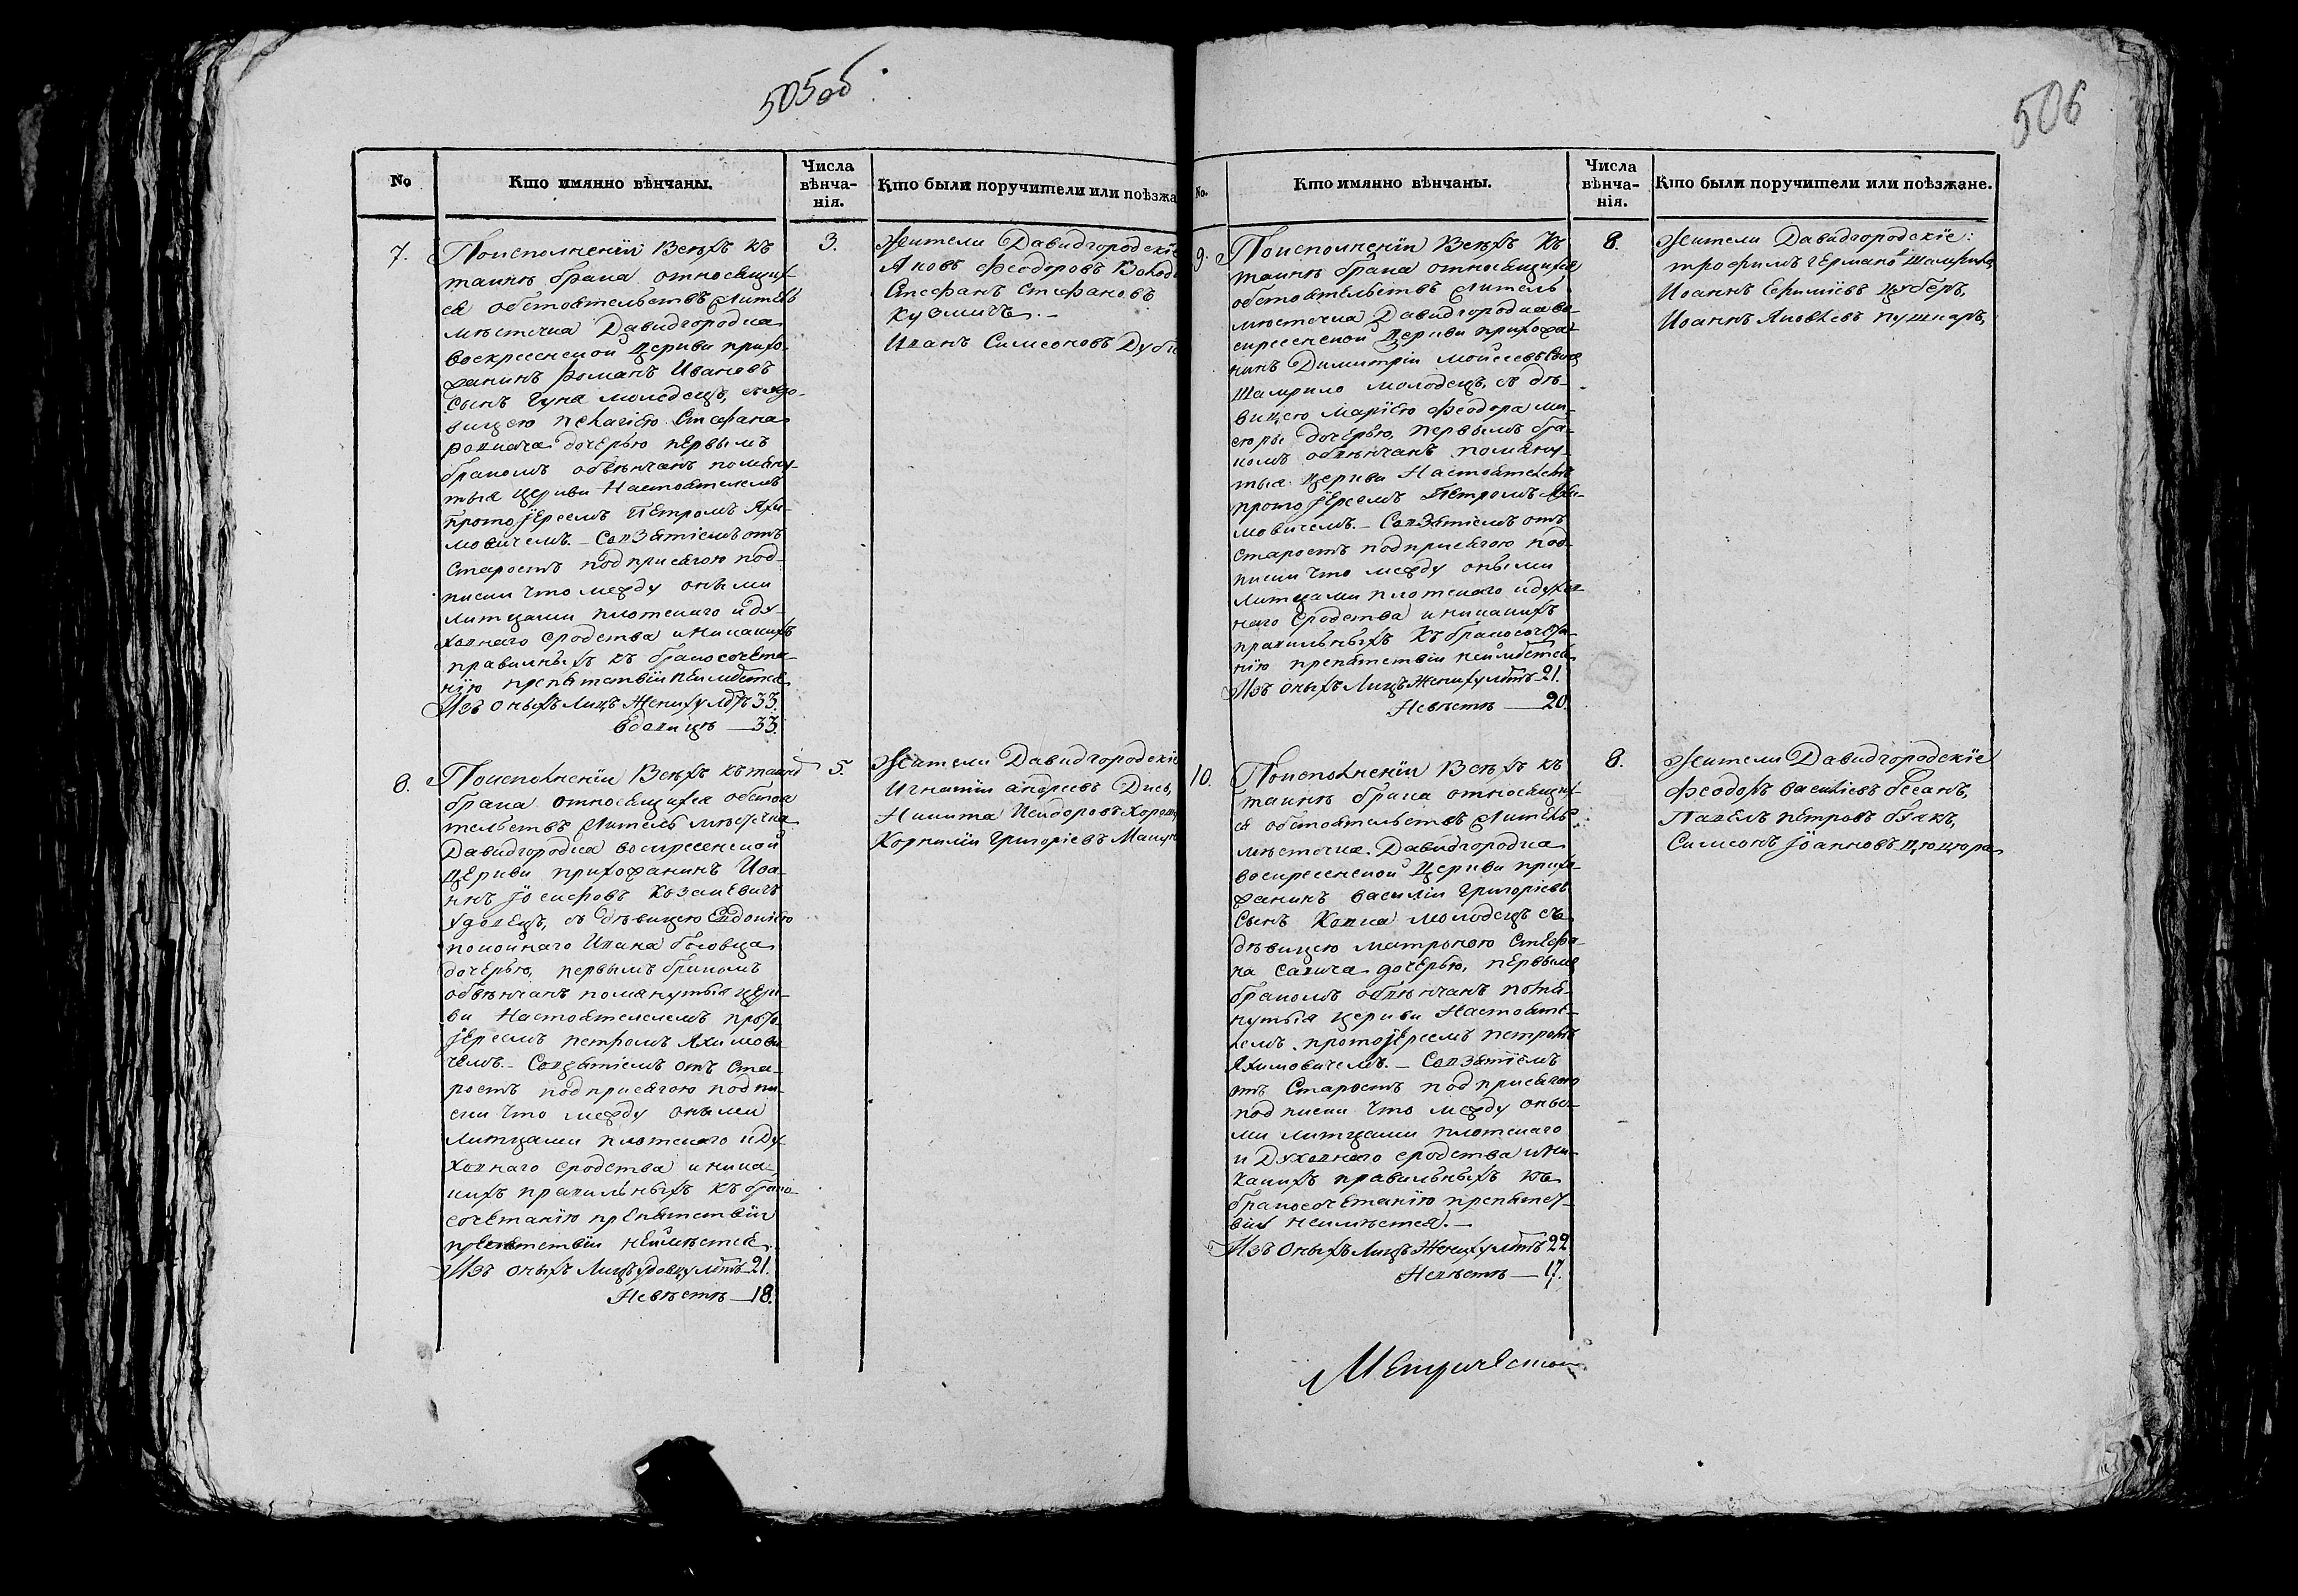 505об.
No
Кто имянно вѣнчаны.
Числа
вѣнча-
нія.
Кто были поручители или поѣзжа
7.
По исполненіи Всѣхъ къ
таинѣ брака относящих-
ся обстоятельствъ Житель
мѣстечка Давидгородка
воскресенской Церкви прихо-
жанинъ Романъ Ивановъ
Сынъ молодецъ,
Стефана
дочерью первымъ
бракомъ обвѣнчанъ помяну-
тыя Церкви Настоятелемъ
Протоіереемъ Петромъ Яхи-
мовичемъ. – Совзятіемъ отъ
Старостъ подприсягою под-
писки что между оными
литцами плотскаго и ду-
ховнаго сродства и никакихъ
правильныхъ къ бракосочета-
нію препятствіи неимѣется
Изъ оныхъ Лицъ Жениху лѣтъ 33.
Вдовицѣ — 33.
3.
Жители Давидгородскіе
Яковъ Феодоровъ
Стефанъ Стефановъ
Кузмичъ. –
Иванъ Симеоновъ
8.
По исполненіи Всѣхъ къ таинѣ
брака относящихся обстоя
тельствъ Житель мѣстечка
Давидгородка воскресенской
Церкви прихожанинъ Іоа-
ннъ Іосифовъ Козакевичъ
Удовецъ, съ дѣвицею Евдокіею
покойнаго Ивана
дочерью, первымъ бракомъ
обвѣнчанъ помянутыя церк-
ви Настоятелемъ прото-
іереемъ петромъ Яхимови-
чемъ. – Совзятіемъ отъ Ста-
ростъ подприсягою подпи-
ски что между оными
литцами плотскаго и ду-
ховнаго сродства и ника-
кихъ правильныхъ къ брако-
сочетанію препятствіи
препятствіи неимѣется.
Изъ оныхъ Лицъ Удовцу лѣтъ 21.
Невѣстѣ — 18.
5.
Жители Давидгородскіе
Игнатіи андреевъ
Никита Исидоровъ
Корнилій Григоріевъ
506
No.
Кто имянно вѣнчаны.
Числа
вѣнча-
нія.
Кто были поручители или поѣзжане.
9.
По исполненіи Всѣхъ къ
таинѣ брака относящихся
обстоятельствъ Житель
мѣстечка Давидгородка во-
скресенской Церкви прихожа-
нинъ Димитріи Мойсеевъ Сынъ
Шамрило молодецъ, съ дѣ-
вицею Маріею Феодора Ми-
сюры дочерью, первымъ бра-
комъ обвѣнчанъ помяну-
тыя Церкви Настоятелемъ
протоіереемъ Петромъ Яхи-
мовичемъ. – Совзятіемъ отъ
Старостъ подприсягою под-
писки что между оными
литцами плотскаго и духов-
наго сродства и никакихъ
правильныхъ къ бракосочета-
нію препятствіи неимѣется
Изъ оныхъ Лицъ Жениху лѣтъ 21.
Невѣстѣ — 20.
8.
Жители Давидгородскіе:
трофимъ
Іоаннъ Ефиміевъ Цуберъ,
Іоаннъ Яковлевъ пушкаръ,
10.
По исполненіи Всѣхъ къ
таинѣ брака относящих-
ся обстоятельствъ Житель
мѣстечка Давидгородка
воскресенской Церкви прихо-
жанинъ василіи Григоріевъ
Сынъ Ковка молодецъ съ
дѣвицею Матроною Стефа-
на Савича дочерью, первымъ
бракомъ обвѣнчанъ помя-
нутыя церкви Настояте-
лемъ протоіереемъ петромъ
Яхимовичемъ. – Совзятіемъ
отъ Старостъ подприсягою
подписки что между оны-
ми литцами плотскаго
и Духовнаго сродства и ни-
какихъ правильныхъ къ
бракосочетанію препятст-
віи неимѣется. –
Изъ оныхъ Лицъ Жениху лѣтъ 22
Невѣстѣ — 17.
8.
Жители Давидгородскіе
Феодоръ василіевъ
Павелъ Петровъ
Симеонъ Іоанновъ Цюцюра